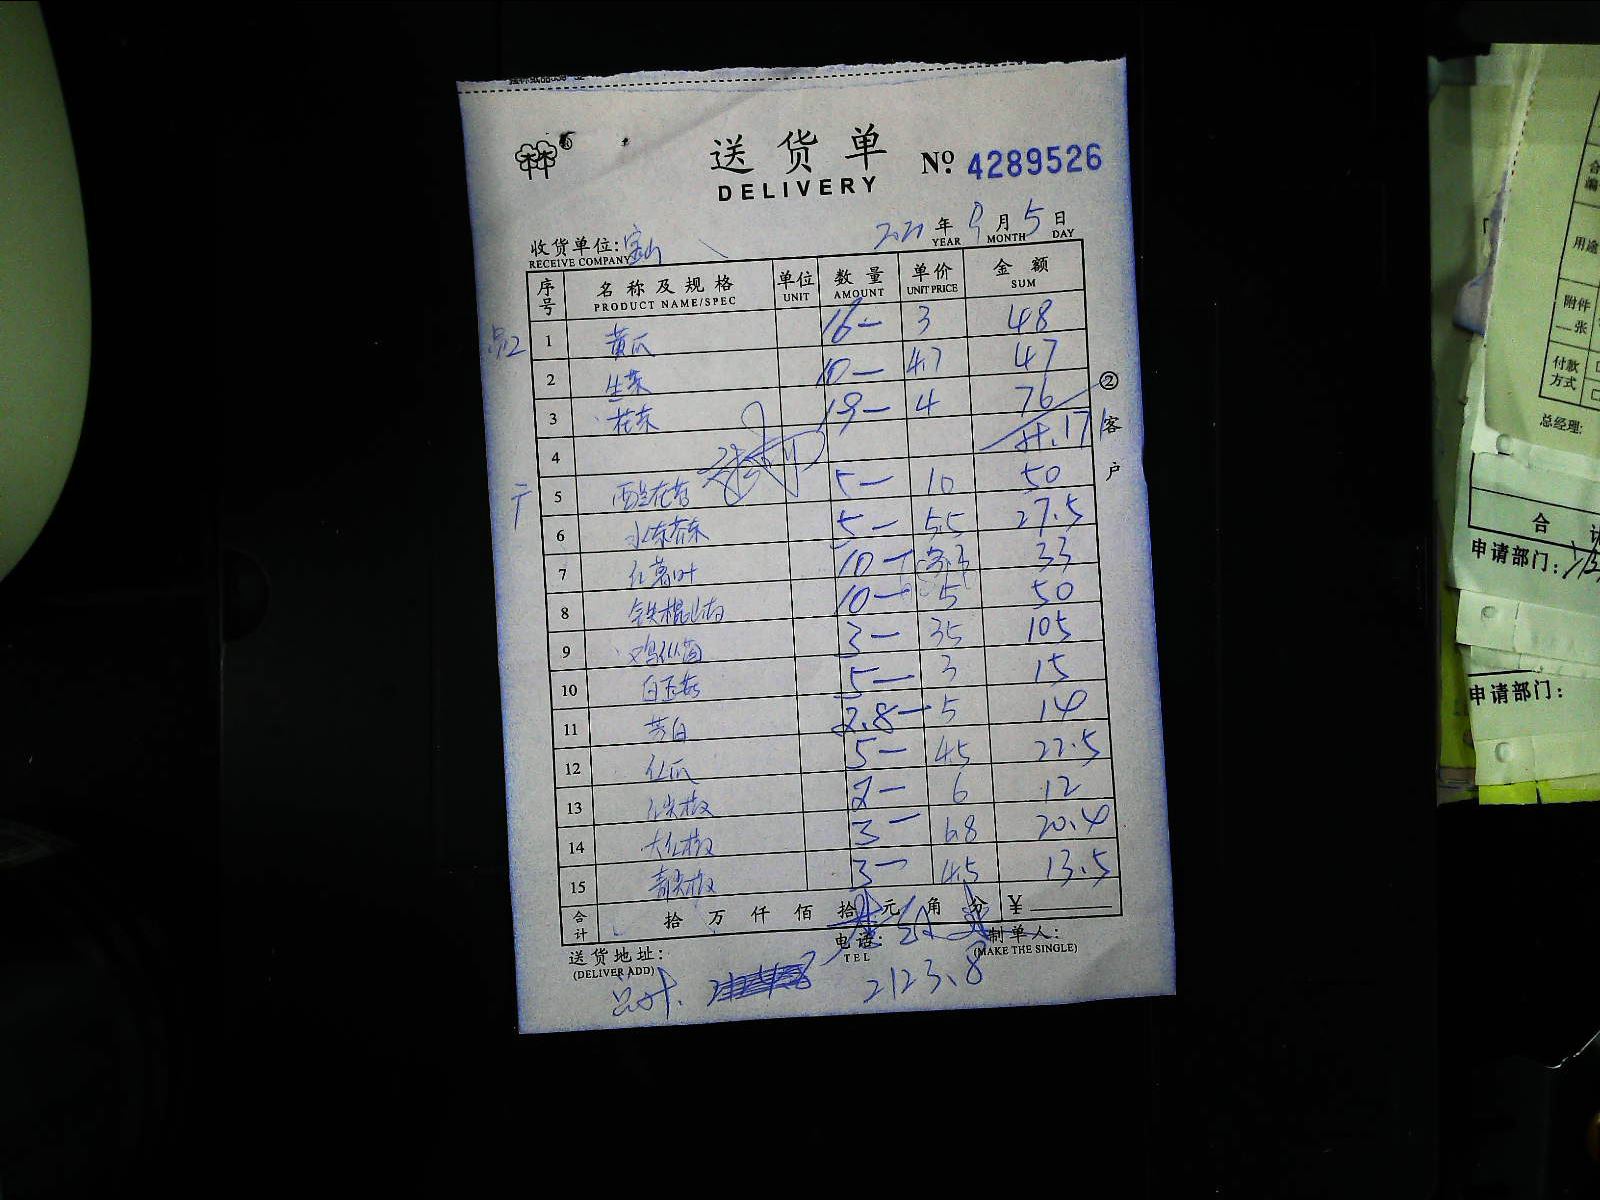 送货单
DELIVERY
№ 4289526
2021 年 9 月 5 日
YEAR MONTH DAY
收货单位: 宝山
RECEIVE COMPANY
序号 名称及规格 单位 数量 单价 金额
PRODUCT NAME/SPEC UNIT AMOUNT UNIT PRICE SUM
1 黄瓜 16— 3 48
2 生菜 10— 4.7 47
3 花菜 19— 4 76
4 计.171
5 西兰花苔 5— 10 50
6 水东芥菜 5— 5.5 27.5
7 红薯叶 10— 3.3 33
8 铁棍山药 10— 5 50
9 鸡枞菌 3— 35 105
10 白玉菇 5— 3 15
11 茭白 2.8— 5 14
12 红瓜 5— 4.5 22.5
13 红尖椒 2— 6 12
14 大红椒 3— 6.8 20.4
15 青尖椒 3— 4.5 13.5
合计 拾 万 仟 佰 拾 元 角 分 ¥
②客户
送货地址:
(DELIVER ADD)
电话:
TEL
制单人:
(MAKE THE SINGLE)
总计. 2123.8
合
编
用途
附件
一张
付款
方式
总经理:
合 计
申请部门:
申请部门: